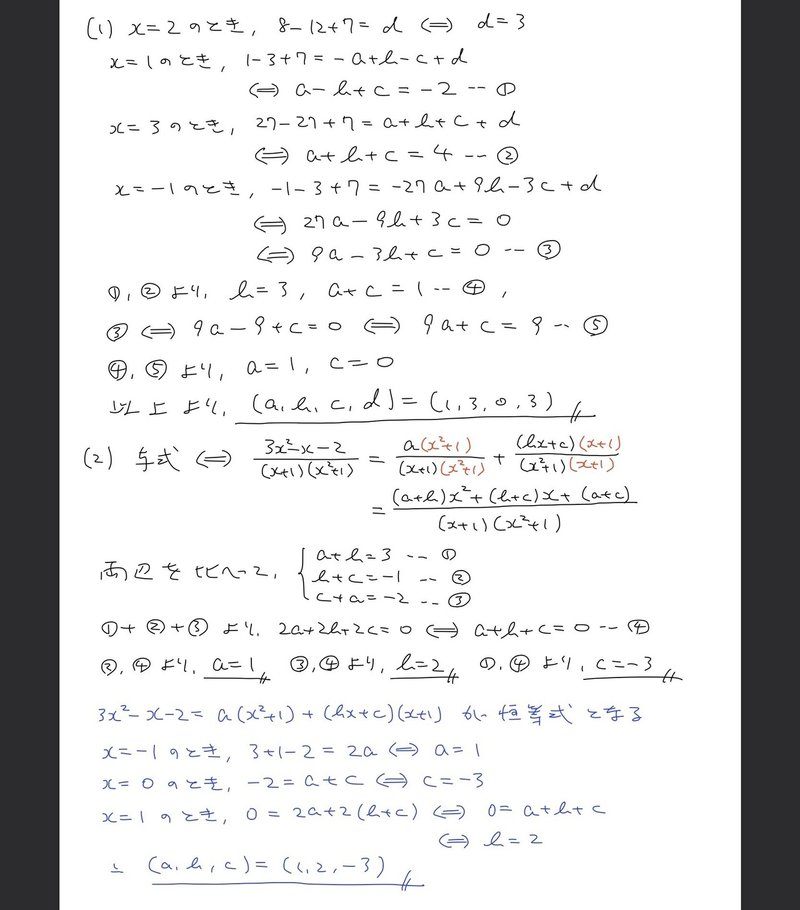 (1) x=2のとき, 8-12+7=d ⇔ d=3
x=1のとき, 1-3+7=-a+b-c+d
⇔ a-b+c=-2 -- ①
x=3のとき, 27-27+7=a+b+c+d
⇔ a+b+c=4 -- ②
x=-1のとき, -1-3+7=-27a+9b-3c+d
⇔ 27a-9b+3c=0
⇔ 9a-3b+c=0 -- ③
①, ②より, b=3, a+c=1 -- ④,
③ ⇔ 9a-9+c=0 ⇔ 9a+c=9 -- ⑤
④, ⑤より, a=1, c=0
以上より, (a,b,c,d)=(1,3,0,3)
(2) 与式 ⇔ (3x²-x-2)/((x+1)(x²+1)) = a(x²+1)/((x+1)(x²+1)) + (bx+c)(x+1)/((x²+1)(x+1))
= ((a+b)x²+(b+c)x+(a+c))/((x+1)(x²+1))
両辺を比べて, { a+b=3 -- ①
b+c=-1 -- ②
c+a=-2 -- ③
①+②+③より, 2a+2b+2c=0 ⇔ a+b+c=0 -- ④
②, ④より, a=1 ③, ④より, b=2 ①, ④より, c=-3
3x²-x-2=a(x²+1)+(bx+c)(x+1) が恒等式となる
x=-1のとき, 3+1-2=2a ⇔ a=1
x=0のとき, -2=a+c ⇔ c=-3
x=1のとき, 0=2a+2(b+c) ⇔ 0=a+b+c
⇔ b=2
∴ (a,b,c)=(1,2,-3)